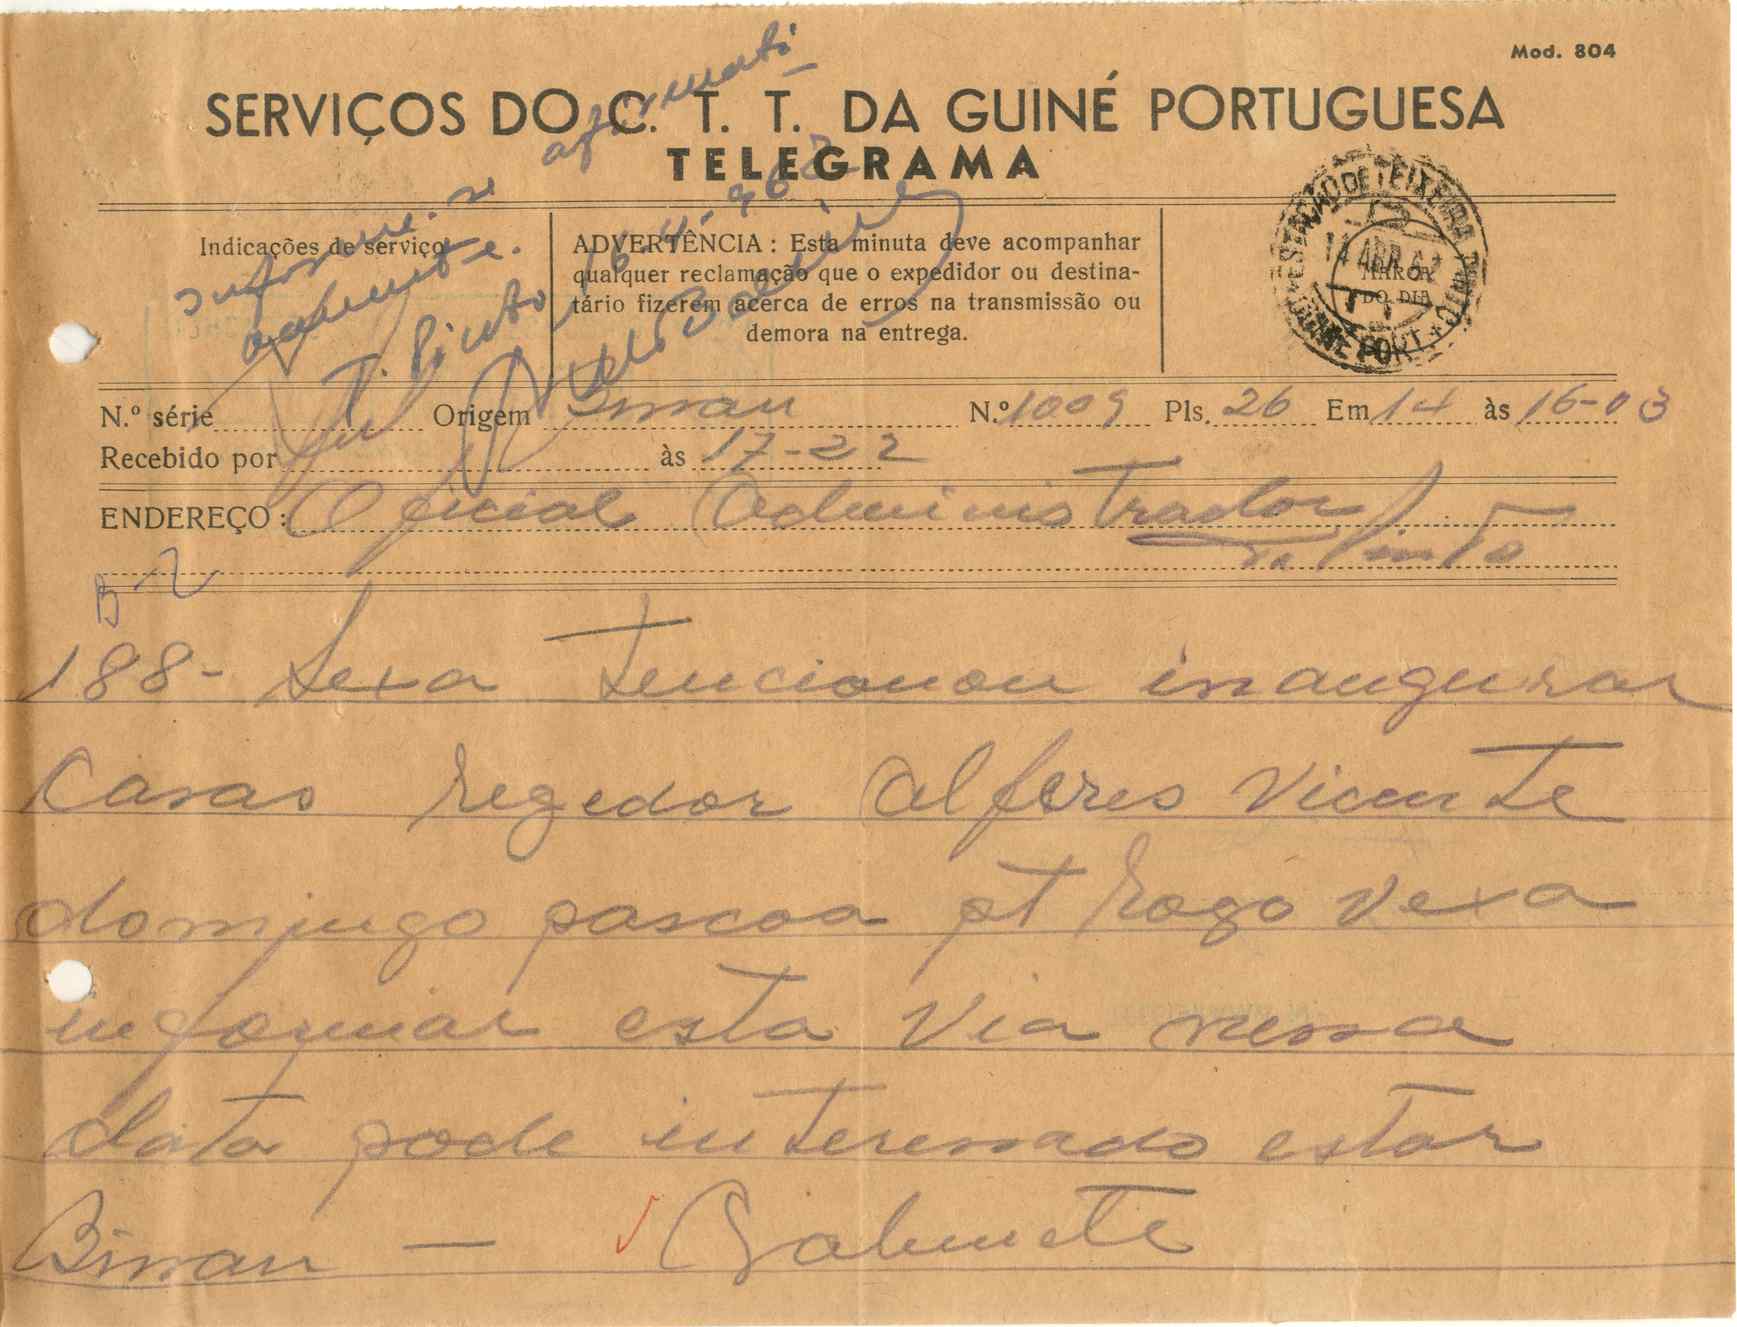 Mod. 804
SERVIÇOS DO C. T. T. DA GUINÉ PORTUGUESA
TELEGRAMA
Informe-se afirmati
vamente.
T. Pinto, 16-4-962
Indicações de serviço
ADVERTÊNCIA : Esta minuta deve acompanhar
qualquer reclamação que o expedidor ou destina-
tário fizerem acerca de erros na transmissão ou
demora na entrega.
ESTAÇÃO DE TEIXEIRA PINTO
14 ABR 62
MARCA
DO DIA
GUINÉ PORT.
N.º série Origem Bissau N.º 1009 Pls. 26 Em 14 às 16-03
Recebido por às 17-22
ENDEREÇO : Oficial Administrador
T. Pinto
188 - Sexa tencionou inaugurar
casas regedor Alferes Vicente
domingo pascoa pt Rogo Vexa
informar esta via nessa
data pode interessado estar
Bissau — Gabinete